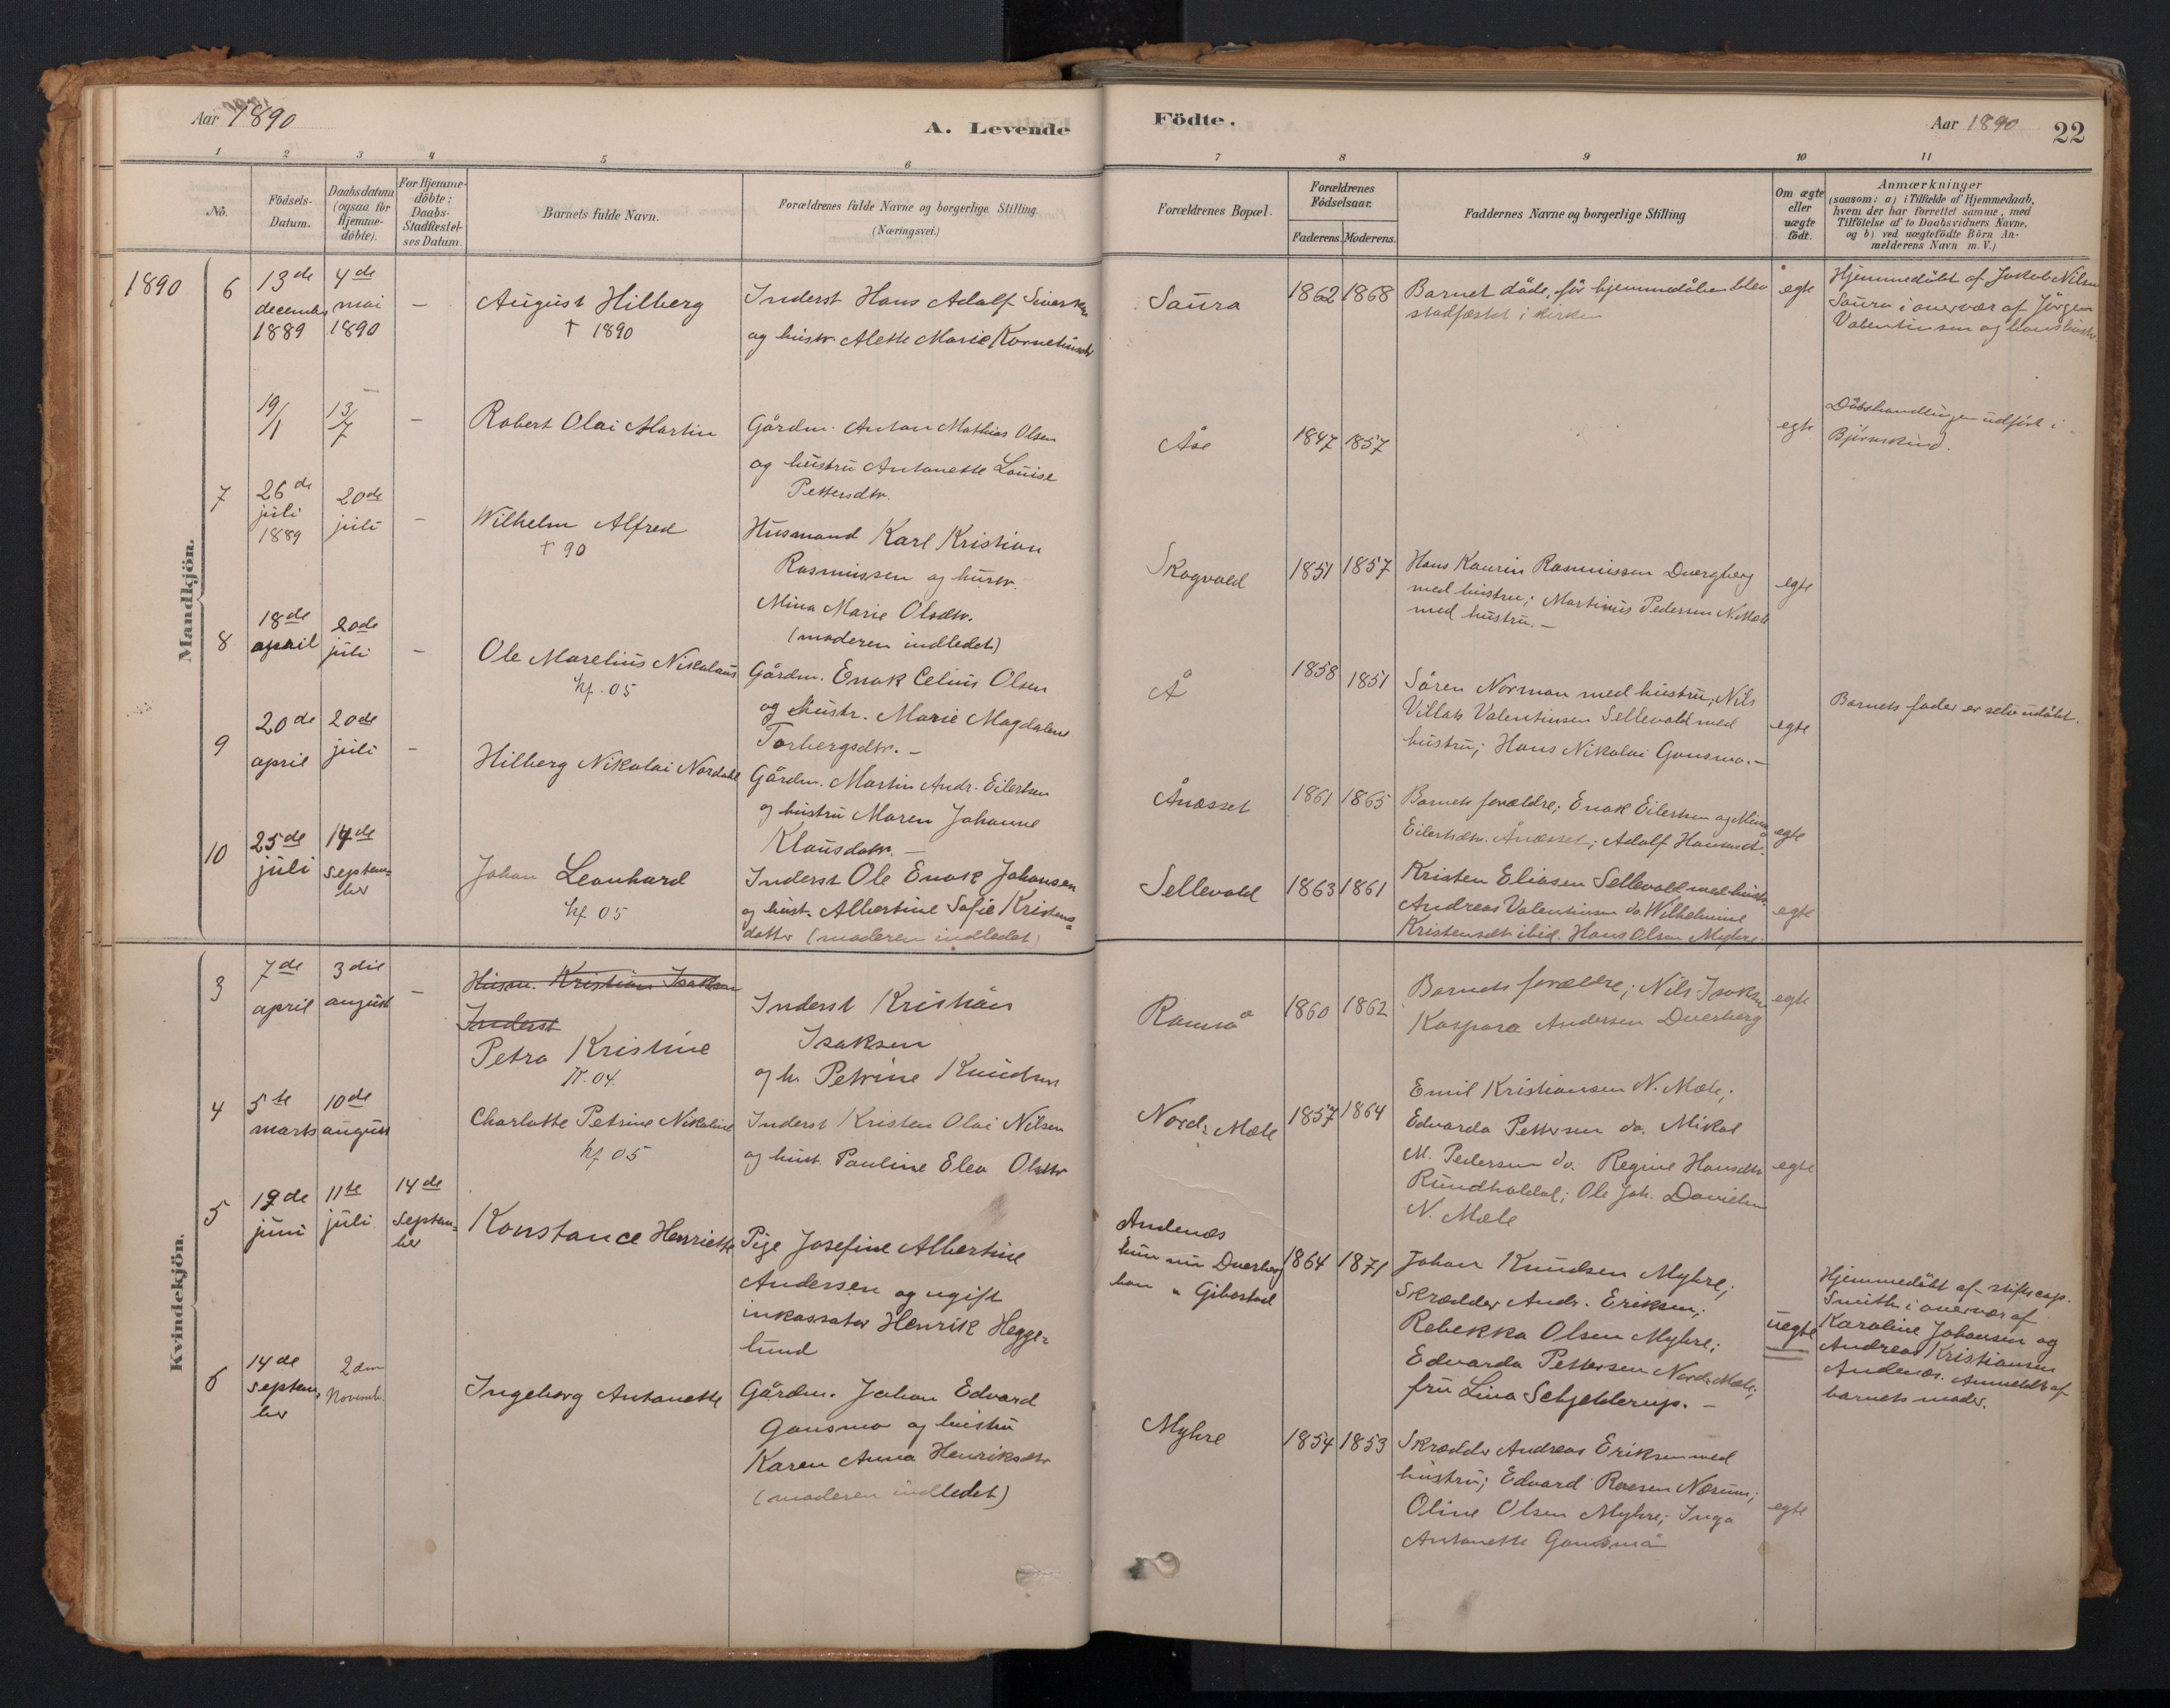 Aar 1890
A. Levende
Födte.
Aar 1890
22
1 2 3 4 5 6 7 8 9 10 11
No.
Födsels-
Datum.
Daabsdatum
(ogsaa for
Hjemme-
döbte).
For Hjemme-
döbte:
Daabs-
Stadfæstel-
ses Datum.
Barnets fulde Navn.
Forældrenes fulde Navne og borgerlige Stilling.
(Næringsvei.)
Forældrenes Bopæl.
Forældrenes
Födselsaar.
Faderens. Moderens.
Faddernes Navne og borgerlige Stilling
Om ægte
eller
uægte
födt.
Anmærkninger
(saasom: a) i Tilfælde af Hjemmedaab,
hvem der har forrettet samme, med
Tilföielse af to Daabsvidners Navne.
og b) ved uægtefödte Börn An-
melderens Navn m. V.)
Mandkjön.
1890
6
13de
december
1889
4de
mai
1890
–
August Hilberg
† 1890
Inderst Hans Adolf Sivertsen
og hustr. Alette Marie Korneliusdtr
Saura
1862 1868
Barnet döde, för hjemmedåben blev
stadfæstet i kirken
egte
Hjemmedöbt af Jakob Nilsen
Saura i overvær af Jörgen
Valentinsen og hans hustr.
19/1
13/7
–
Robert Olai Martin
Gårdm. Anton Mathias Olsen
og hustru Antonette Louise
Pettersdtr.
Åse
1847 1857
egte
Dåbshandlingen udfört i
Björnskind.
7
26de
juli
1889
20de
juli
–
Wilhelm Alfred
† 90
Husmand Karl Kristian
Rasmussen og hustr.
Mina Marie Olsdtr.
(moderen indledet)
Skogvold
1851 1857
Hans Kaurin Rasmussen Dvergberg
med hustru; Martinus Pedersen N. Mæle
med hustru. –
egte
8
18de
april
20de
juli
–
Ole Marelius Nikolaus
kf. 05
Gårdm. Enok Celius Olsen
og hustr. Marie Magdalene
Torbergsdtr. –
Å
1858 1851
Sören Norman med hustru; Nils
Villats Valentinsen Sellevold med
hustru; Hans Nikolai Gansmo. –
egte
Barnets fader er selv udöbt.
9
20de
april
20de
juli
–
Hilberg Nikolai Nordahl
Gårdm. Martin Andr. Eilertsen
og hustru Maren Johanne
Klausdatr. –
Ånæsset
1861 1865
Barnets forældre; Enok Eilertsen og Mina
Eilertsdtr. Ånæsset; Adolf
egte
10
25de
juli
14de
septem=
ber
Johan Leonhard
kf 05
Inderst Ole Enok Johansen
og hust. Albertine Sofie Kristens=
datter (moderen indledet)
Sellevold
1863 1861
Kristen Eliasen Sellevold med hustr.
Andreas Valentinsen do. Wilhelmine
Kristensdtr ibid. Hans Olsen Myhre.
egte
Kvindekjön.
3
7de
april
3die
august
–
Husm. Kristian Isaksen
Inderst
Petra Kristine
K. 04.
Inderst Kristian
Isaksen
og h. Petrine Knudsen
Ramså
1860 1862
Barnets forældre; Nils Isaksen
Kaspara Andersen Dverberg
egte
4
5te
marts
10de
august
Charlotte Petrine Nikoline
kf 05
Inderst Kristen Olai Nilsen
og hust. Pauline Elea Olsdtr
Nord: Mæle
1857 1864
Emil Kristiansen N. Mæle;
Edvarda Pettersen do. Mikal
M. Pedersen do. Regine Hansdtr
Rundholdal; Ole Joh. Davidsen
N. Mæle
egte
5
19de
juni
11te
juli
14de
septem=
ber
Konstance Henriette
Pige Josefine Albertine
Andersen og ugift
inkassator Henrik Hegge=
lund
Andenæs
hun nu Dverberg
han " Gibostad
1864 1871
Johan Knudsen Myhre;
Skrædder Andr. Eriksen;
Rebekka Olsen Myhre;
Edvarda Pettersen Nord: Mæle;
fru Lina Schjelderup. –
uegte
Hjemmedöbt af stiftscap.
Smith i overvær af
Karoline Johansen og
Andreas Kristiansen
Andenæs. Anmeldt af
barnets moder.
6
14de
septem=
ber
2den
Novemb.
Ingeborg Antonette
Gårdm. Johan Edvard
Gansmo og hustru
Karen Anna Henriksdtr
(moderen indledet)
Myhre
1854 1853
Skrædder Andreas Eriksen med
hustru; Edvard Næsum;
Oline Olsen Myhre; Inga
Antonette Gansmå
egte